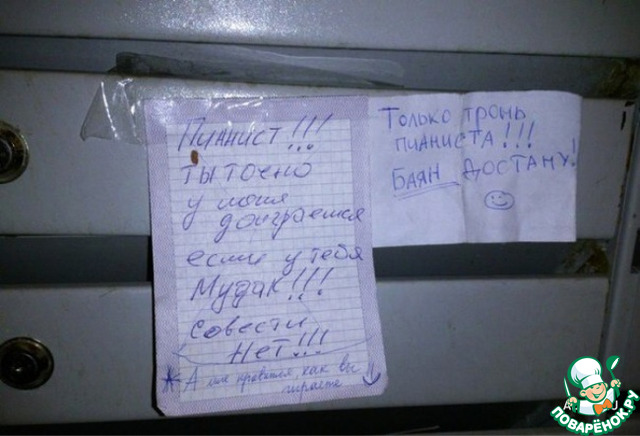 Пианист!!!
ты точно
у меня
доиграешся
если у тебя
Мудак!!!
совести
Нет!!!
* А мне нравится, как вы
играете
Только тронь
пианиста!!!
Баян достану!
ПОВАРЁНОК.РУ